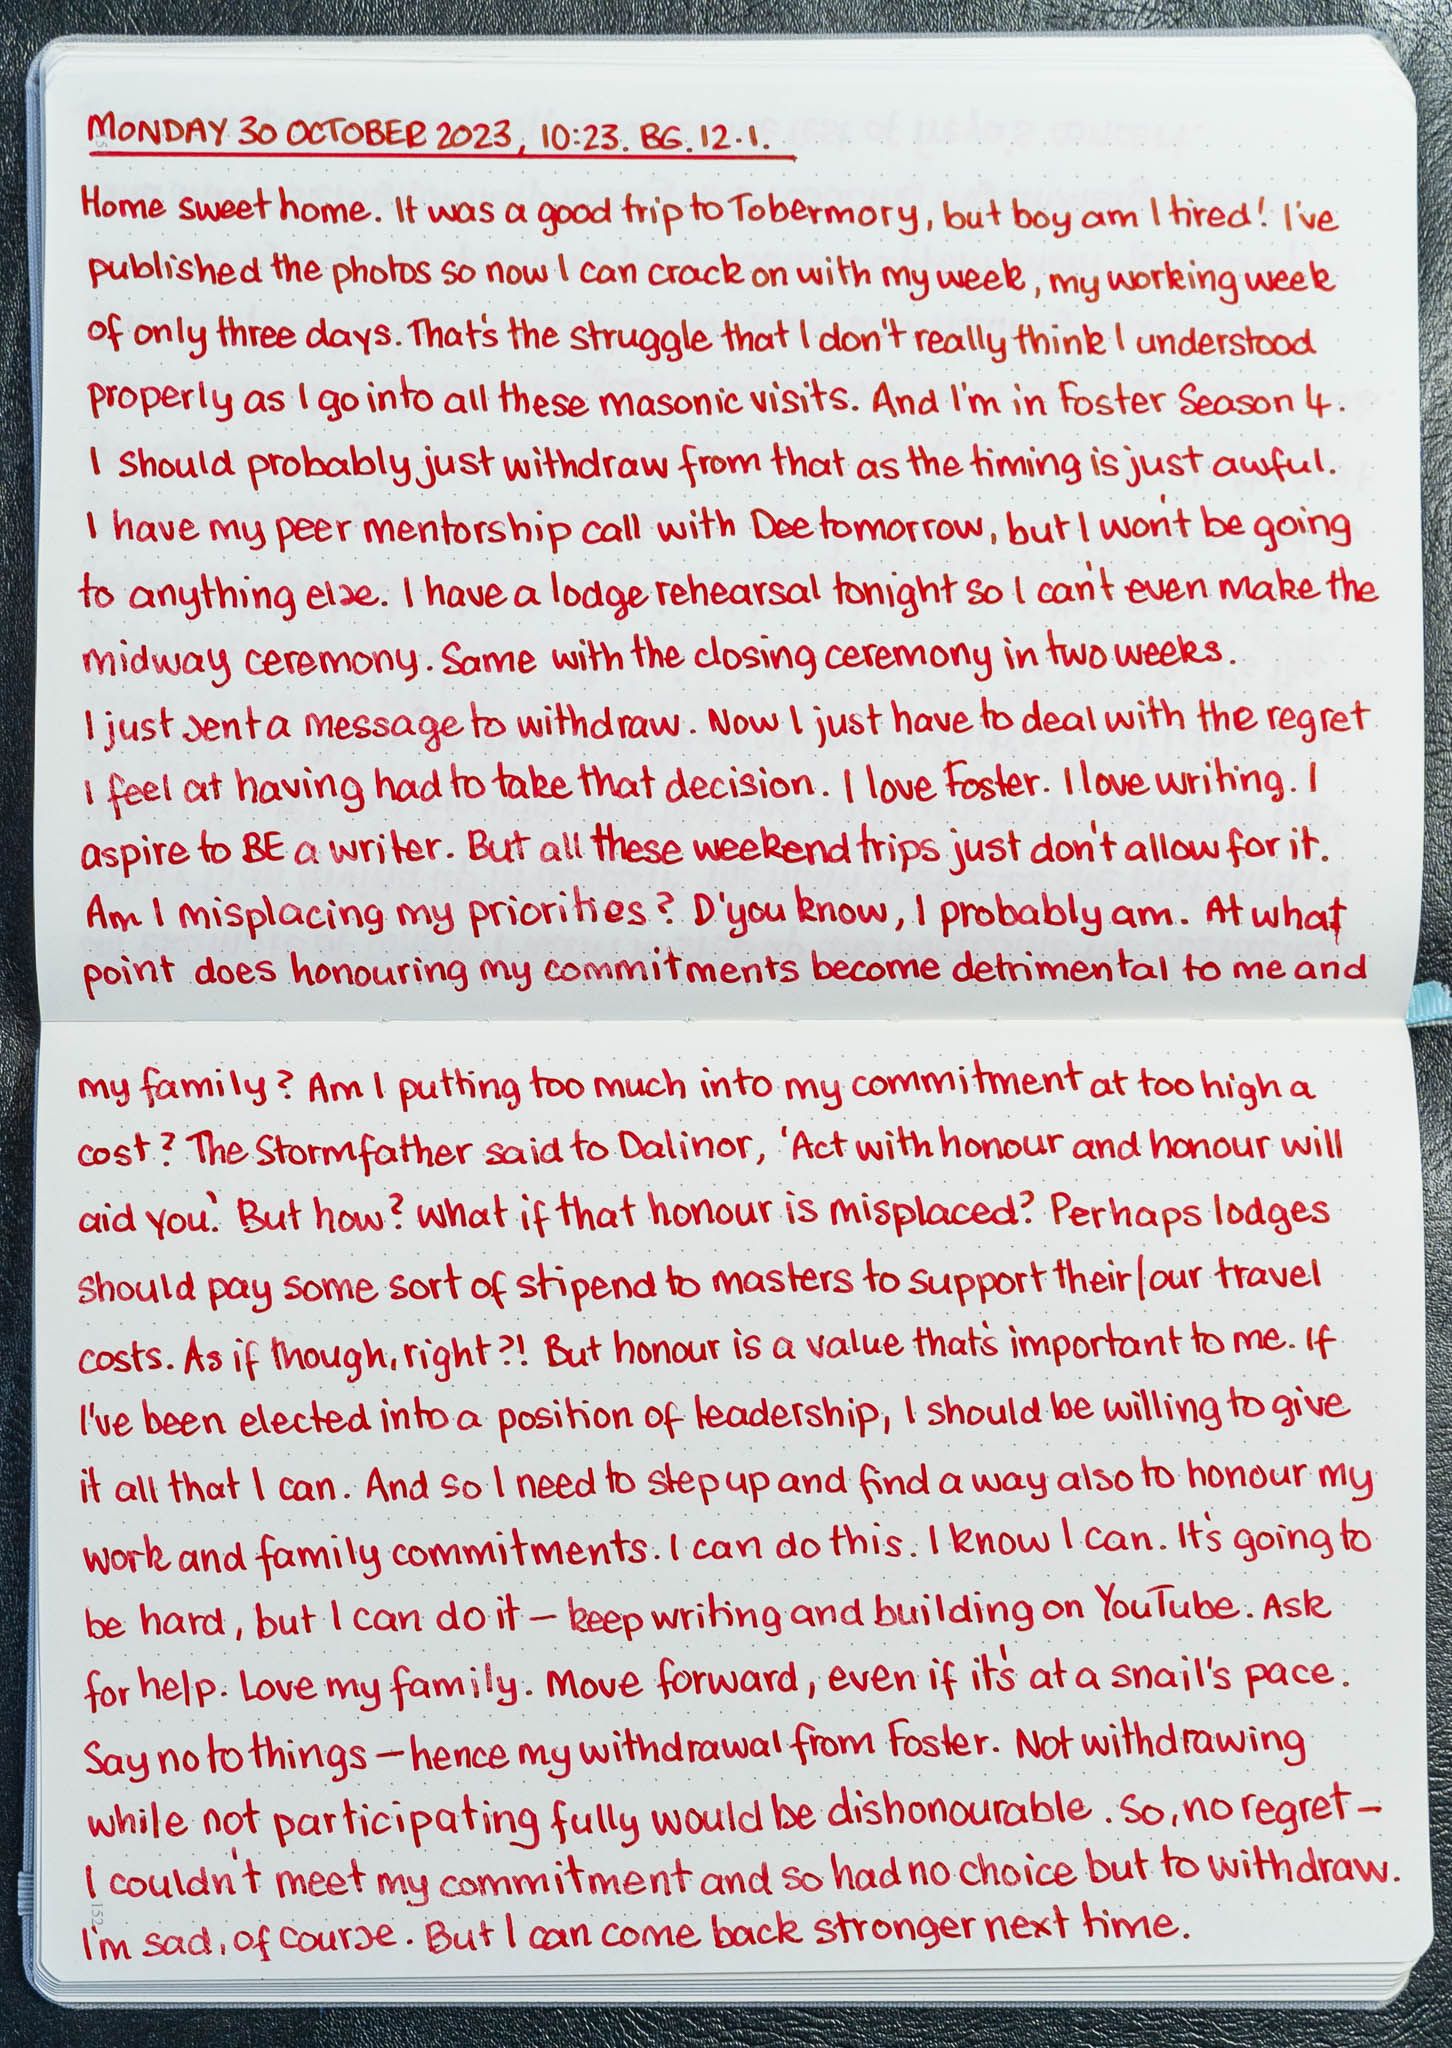 MONDAY 30 OCTOBER 2023, 10:23. BG. 12.1.
Home sweet home. It was a good trip to Tobermory, but boy am I tired! I've
published the photos so now I can crack on with my week, my working week
of only three days. That's the struggle that I don't really think I understood
properly as I go into all these masonic visits. And I'm in Foster Season 4.
I should probably just withdraw from that as the timing is just awful.
I have my peer mentorship call with Dee tomorrow, but I won't be going
to anything else. I have a lodge rehearsal tonight so I can't even make the
midway ceremony. Same with the closing ceremony in two weeks.
I just sent a message to withdraw. Now I just have to deal with the regret
I feel at having had to take that decision. I love Foster. I love writing. I
aspire to BE a writer. But all these weekend trips just don't allow for it.
Am I misplacing my priorities? D'you know, I probably am. At what
point does honouring my commitments become detrimental to me and
my family? Am I putting too much into my commitment at too high a
cost? The Stormfather said to Dalinor, 'Act with honour and honour will
aid you.' But how? What if that honour is misplaced? Perhaps lodges
should pay some sort of stipend to masters to support their/our travel
costs. As if though, right?! But honour is a value that's important to me. If
I've been elected into a position of leadership, I should be willing to give
it all that I can. And so I need to step up and find a way also to honour my
work and family commitments. I can do this. I know I can. It's going to
be hard, but I can do it – keep writing and building on YouTube. Ask
for help. Love my family. Move forward, even if it's at a snail's pace.
Say no to things – hence my withdrawal from Foster. Not withdrawing
while not participating fully would be dishonourable. So, no regret –
I couldn't meet my commitment and so had no choice but to withdraw.
152
I'm sad, of course. But I can come back stronger next time.